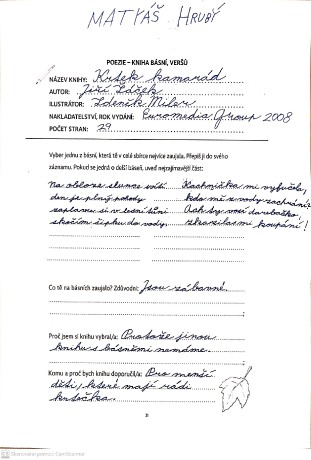 MATYÁŠ HRUBÝ
POEZIE – KNIHA BÁSNÍ, VERŠŮ
NÁZEV KNIHY: Krtek kamarád
AUTOR: Jiří Žáček
ILUSTRÁTOR: Zdeněk Miler
NAKLADATELSTVÍ, ROK VYDÁNÍ: Euromedia Group 2008
POČET STRAN: 29
Vyber jednu z básní, která tě v celé sbírce nejvíce zaujala. Přepiš ji do svého
záznamu. Pokud se jedná o delší báseň, uveď nejzajímavější část:
Na obloze slunce svítí
den je plný pohody
zaplavu si v lesní tůni
skočím šipku do vody.
Kachnička mi vyčítala,
kdo mě z vody zachrání?
Ach ty vodní darebáčko,
zkazilas mi koupání!
Co tě na básních zaujalo? Zdůvodni: Jsou zábavné.
Proč jsem si knihu vybral/a: Protože jinou
knihu s básněmi nemáme.
Komu a proč bych knihu doporučil/a: Pro menší
děti, které mají rádi
krtečka.